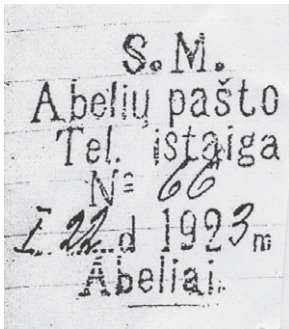 S. M.
Abelių pašto
Tel. įstaiga
№ 66
I 22 d 1923 m
Abeliai.